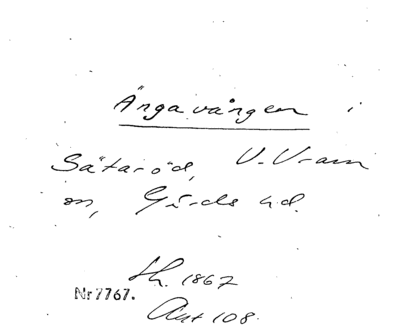 Ängavången i
Sätaröd, V. Vram
sn, Gärds hd.
Sh. 1867
Nr 7767.
Akt 108.